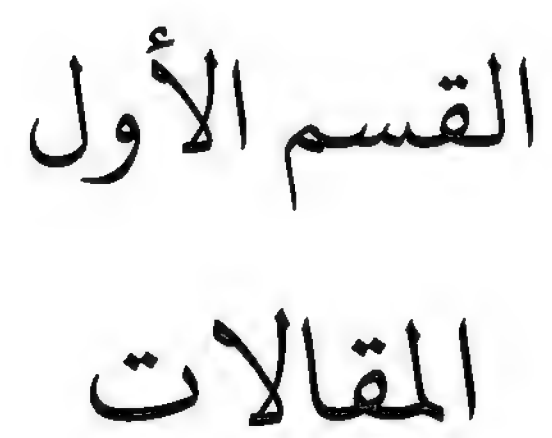 القسم الأول
المقالات